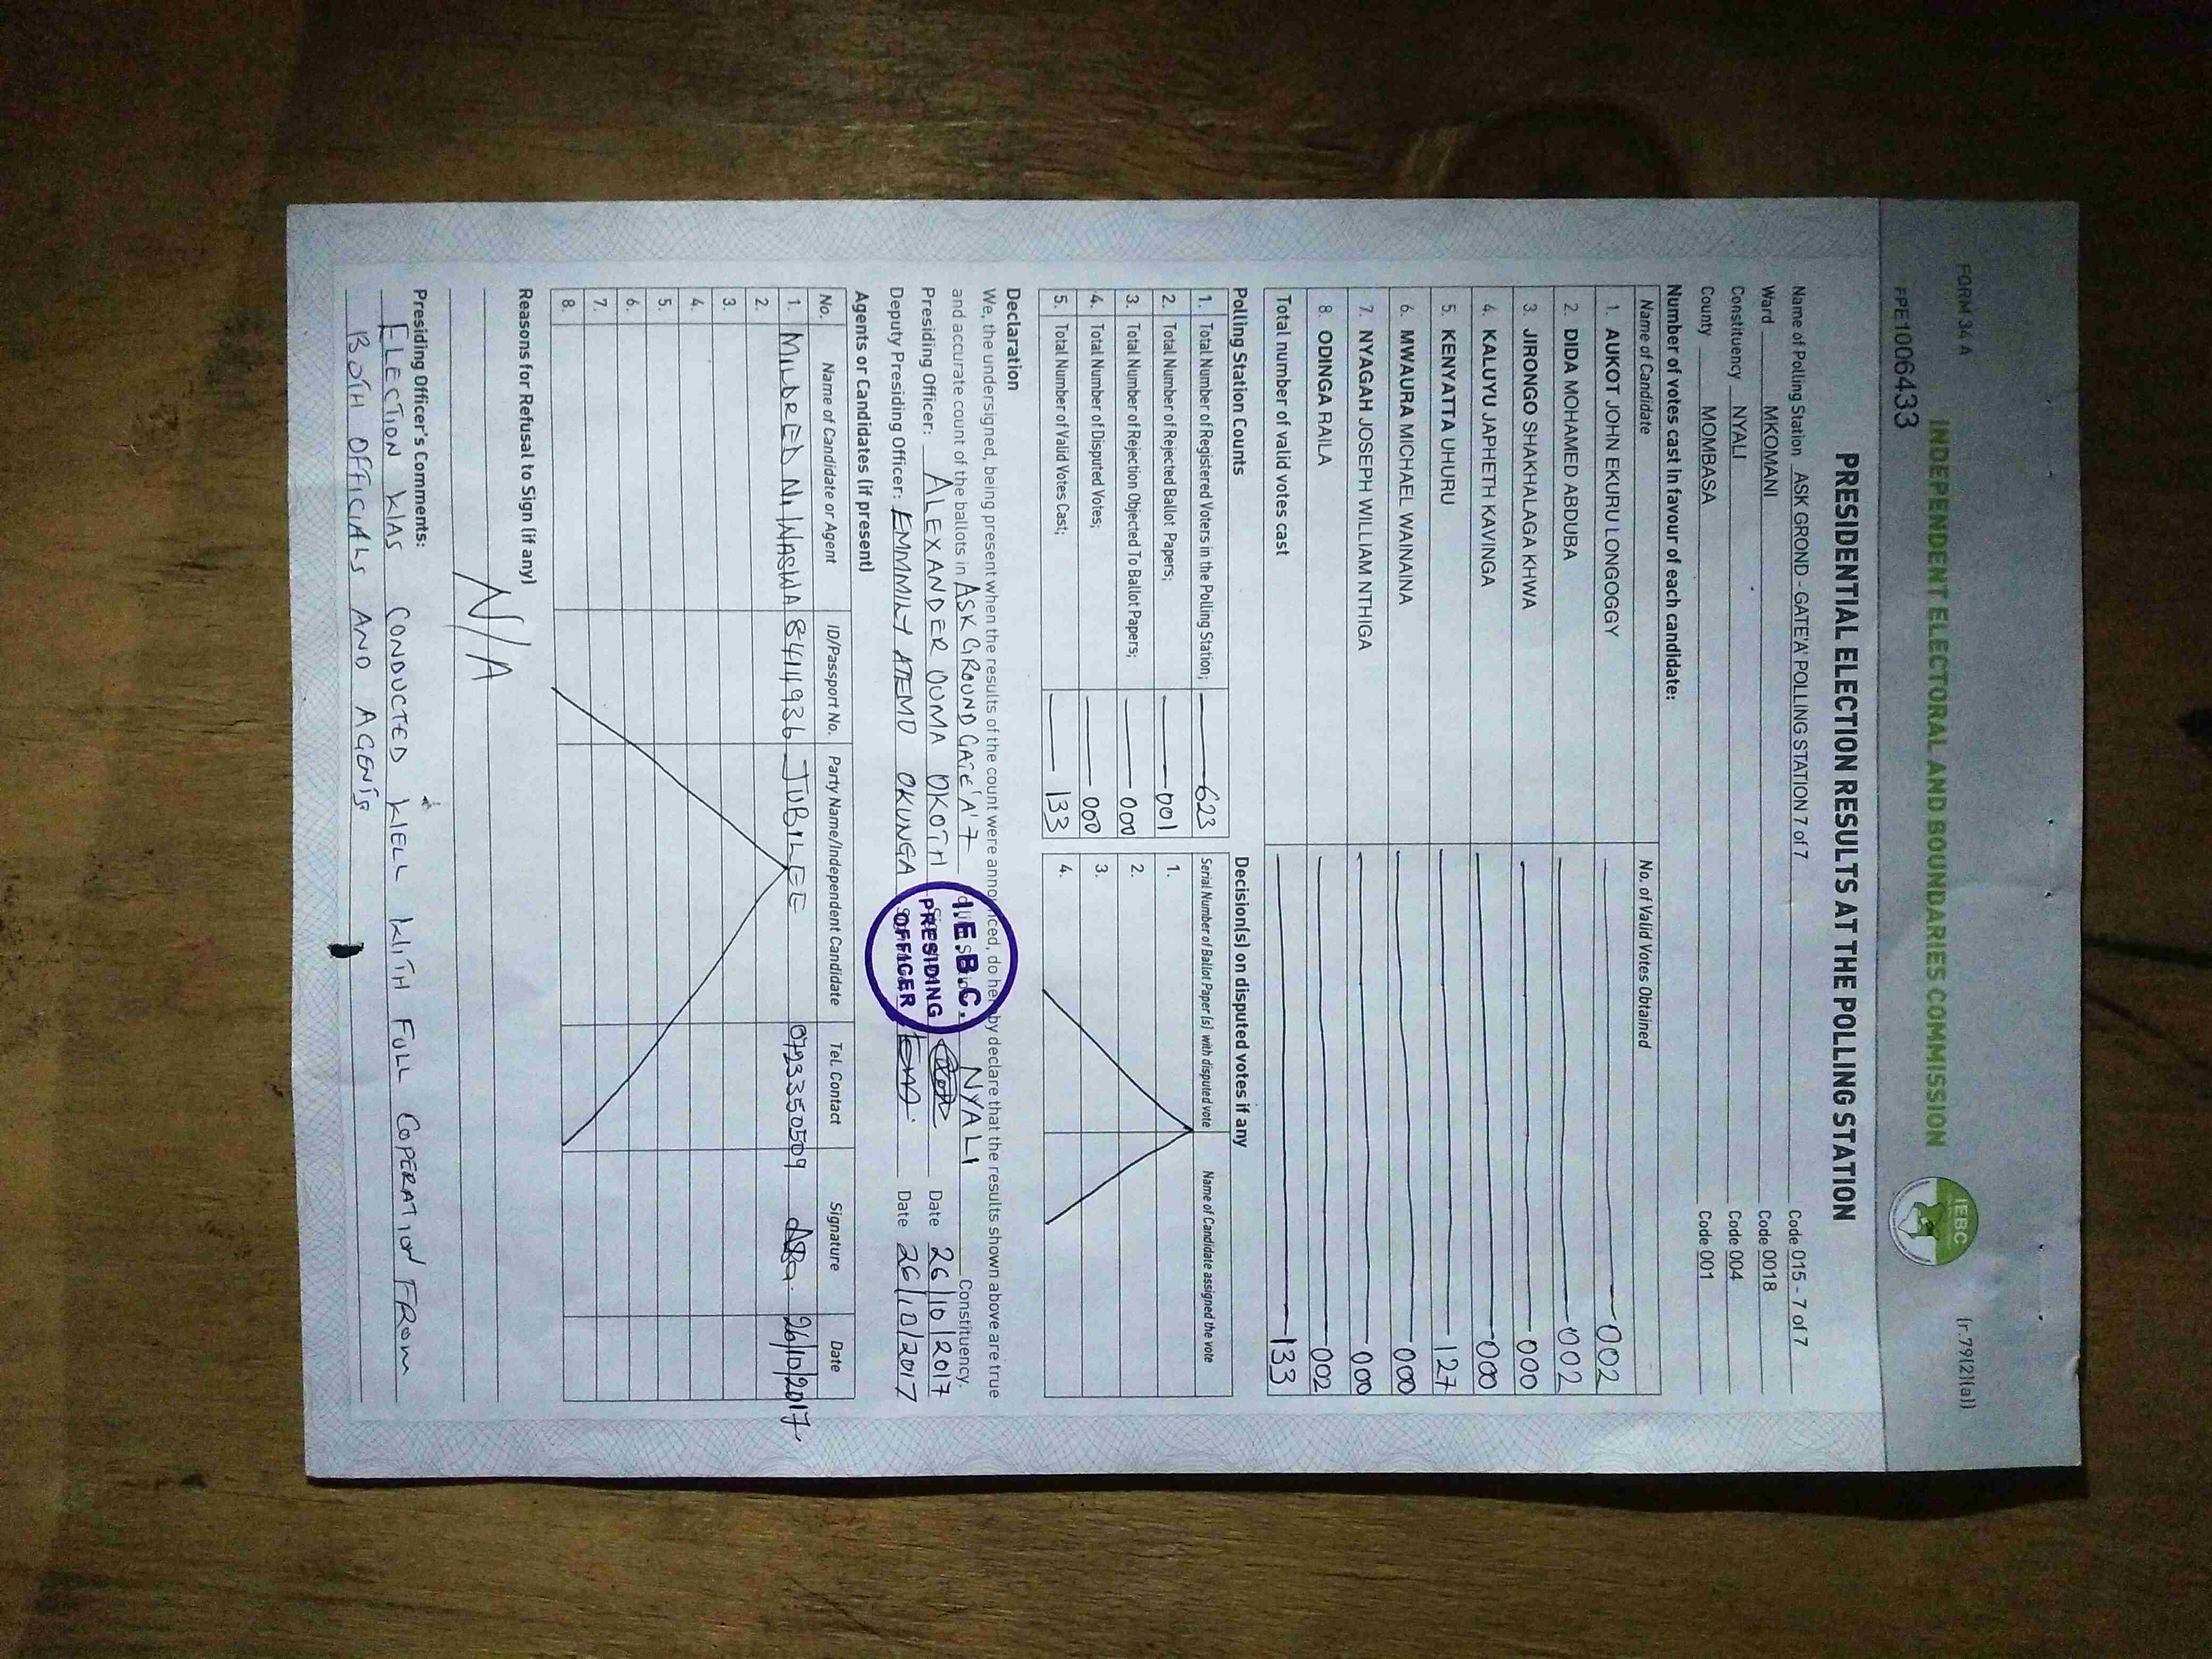 FORM 34 A
(r.79(2)(a))
INDEPENDENT ELECTORAL AND BOUNDARIES COMMISSION
IEBC
FPE1006433
PRESIDENTIAL ELECTION RESULTS AT THE POLLING STATION
Name of Polling Station ASK GROND - GATE'A' POLLING STATION 7 of 7 Code 015 - 7 of 7
Ward MKOMANI Code 0018
Constituency NYALI Code 004
County MOMBASA Code 001
Number of votes cast in favour of each candidate:
Name of Candidate No. of Valid Votes Obtained
1. AUKOT JOHN EKURU LONGOGGY 002
2. DIDA MOHAMED ABDUBA 002
3. JIRONGO SHAKHALAGA KHWA 000
4. KALUYU JAPHETH KAVINGA 000
5. KENYATTA UHURU 127
6. MWAURA MICHAEL WAINAINA 000
7. NYAGAH JOSEPH WILLIAM NTHIGA 000
8. ODINGA RAILA 002
Total number of valid votes cast 133
Polling Station Counts
1. Total Number of Registered Voters in the Polling Station; 623
2. Total Number of Rejected Ballot Papers; 001
3. Total Number of Rejection Objected To Ballot Papers; 000
4. Total Number of Disputed Votes; 000
5. Total Number of Valid Votes Cast; 133
Decision(s) on disputed votes if any
Serial Number of Ballot Paper(s) with disputed vote Name of Candidate assigned the vote
1.
2.
3.
4.
Declaration
We, the undersigned, being present when the results of the count were announced, do hereby declare that the results shown above are true
and accurate count of the ballots in ASK GROUND GATE 'A' 7 NYALI Constituency.
Presiding Officer: ALEXANDER OUMA OKOTH Date 26/10/2017
Deputy Presiding Officer: EMMMILY ATEMO OKUNGA Date 26/10/2017
I.E.B.C.
PRESIDING
OFFICER
Agents or Candidates (if present)
No. Name of Candidate or Agent ID/Passport No. Party Name/Independent Candidate Tel. Contact Signature Date
1. MILDRED N. WASWA 8414936 JUBILEE 0723350509 26/10/2017
2.
3.
4.
5.
6.
7.
8.
Reasons for Refusal to Sign (if any)
N/A
Presiding Officer's Comments:
ELECTION WAS CONDUCTED WELL WITH FULL COPERATION FROM
BOTH OFFICIALS AND AGENTS